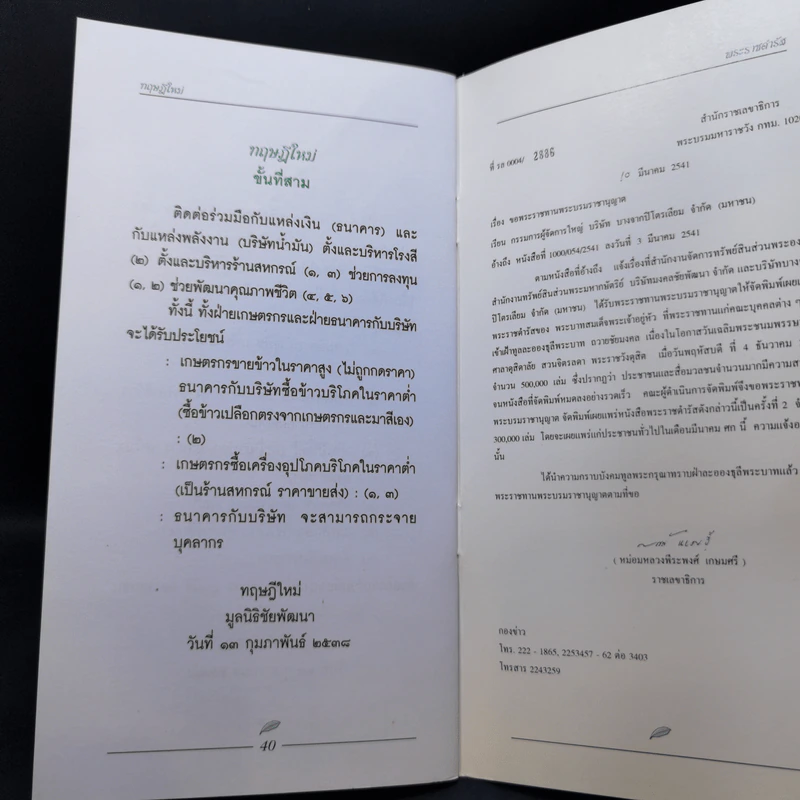 ทฤษฎีใหม่
ทฤษฎีใหม่
ขั้นที่สาม
ติดต่อร่วมมือกับแหล่งเงิน (ธนาคาร) และ
กับแหล่งพลังงาน (บริษัทน้ำมัน) ตั้งและบริหารโรงสี
(๒) ตั้งและบริหารร้านสหกรณ์ (๑, ๓) ช่วยการลงทุน
(๑, ๒) ช่วยพัฒนาคุณภาพชีวิต (๔, ๕, ๖)
ทั้งนี้ ทั้งฝ่ายเกษตรกรและฝ่ายธนาคารกับบริษัท
จะได้รับประโยชน์
: เกษตรกรขายข้าวในราคาสูง (ไม่ถูกกดราคา)
ธนาคารกับบริษัทซื้อข้าวบริโภคในราคาต่ำ
(ซื้อข้าวเปลือกตรงจากเกษตรกรและมาสีเอง)
: (๒)
: เกษตรกรซื้อเครื่องอุปโภคบริโภคในราคาต่ำ
(เป็นร้านสหกรณ์ ราคาขายส่ง) : (๑, ๓)
: ธนาคารกับบริษัท จะสามารถกระจาย
บุคลากร
ทฤษฎีใหม่
มูลนิธิชัยพัฒนา
วันที่ ๑๓ กุมภาพันธ์ ๒๕๓๘
40
พระราชดำรัส
สำนักราชเลขาธิการ
พระบรมมหาราชวัง กทม. 102
ที่ รล 0004/ 2886
๑๐ มีนาคม 2541
เรื่อง ขอพระราชทานพระบรมราชานุญาต
เรียน กรรมการผู้จัดการใหญ่ บริษัท บางจากปิโตรเลียม จำกัด (มหาชน)
อ้างถึง หนังสือที่ 1000/054/2541 ลงวันที่ 3 มีนาคม 2541
ตามหนังสือที่อ้างถึง แจ้งเรื่องที่สำนักงานจัดการทรัพย์สินส่วนพระอง
สำนักงานทรัพย์สินส่วนพระมหากษัตริย์ บริษัทมงคลชัยพัฒนา จำกัด และบริษัทบาง
ปิโตรเลียม จำกัด (มหาชน) ได้รับพระราชทานพระบรมราชานุญาตให้จัดพิมพ์เผยแ
พระราชดำรัสของ พระบาทสมเด็จพระเจ้าอยู่หัว ที่พระราชทานแก่คณะบุคคลต่าง ๆ
เข้าเฝ้าทูลละอองธุลีพระบาท ถวายชัยมงคล เนื่องในโอกาสวันเฉลิมพระชนมพรรษา
ศาลาดุสิดาลัย สวนจิตรลดา พระราชวังดุสิต เมื่อวันพฤหัสบดี ที่ 4 ธันวาคม
จำนวน 500,000 เล่ม ซึ่งปรากฏว่า ประชาชนและสื่อมวลชนจำนวนมากมีความส
จนหนังสือที่จัดพิมพ์หมดลงอย่างรวดเร็ว คณะผู้ดำเนินการจัดพิมพ์จึงขอพระราช
พระบรมราชานุญาต จัดพิมพ์เผยแพร่หนังสือพระราชดำรัสดังกล่าวนี้เป็นครั้งที่ 2 จำ
300,000 เล่ม โดยจะเผยแพร่แก่ประชาชนทั่วไปในเดือนมีนาคม ศก นี้ ความแจ้งอ
นั้น
ได้นำความกราบบังคมทูลพระกรุณาทราบฝ่าละอองธุลีพระบาทแล้ว
พระราชทานพระบรมราชานุญาตตามที่ขอ
( หม่อมหลวงพีระพงศ์ เกษมศรี )
ราชเลขาธิการ
กองข่าว
โทร. 222 - 1865, 2253457 - 62 ต่อ 3403
โทรสาร 2243259